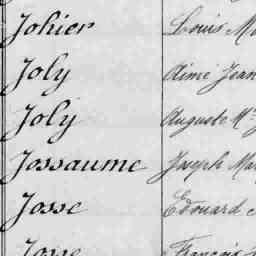 Johier Louis
Joly Aimé Jean
Joly Auguste M.
Jossaume Joseph Mar
Josse Edouard
Josse François